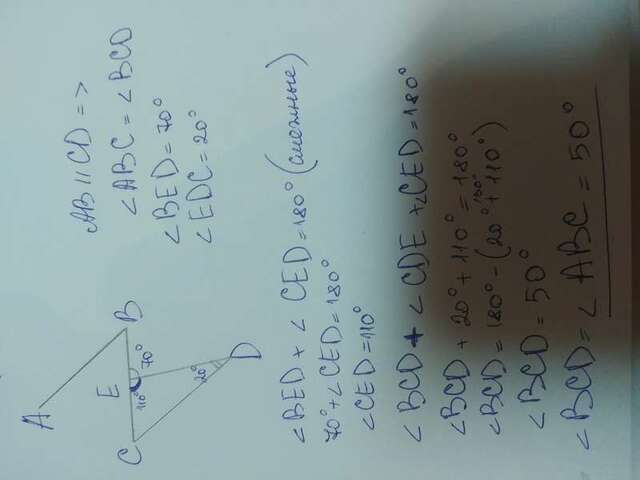 A
E
C
B
110°
70°
20°
D
AB || CD =>
∠ABC = ∠BCD
∠BED = 70°
∠EDC = 20°
∠BED + ∠CED = 180° (смежные)
70° + ∠CED = 180°
∠CED = 110°
∠BCD + ∠CDE + ∠CED = 180°
∠BCD + 20° + 110° = 180°
130°
∠BCD = 180° - (20° + 110°)
∠BCD = 50°
∠BCD = ∠ABC = 50°